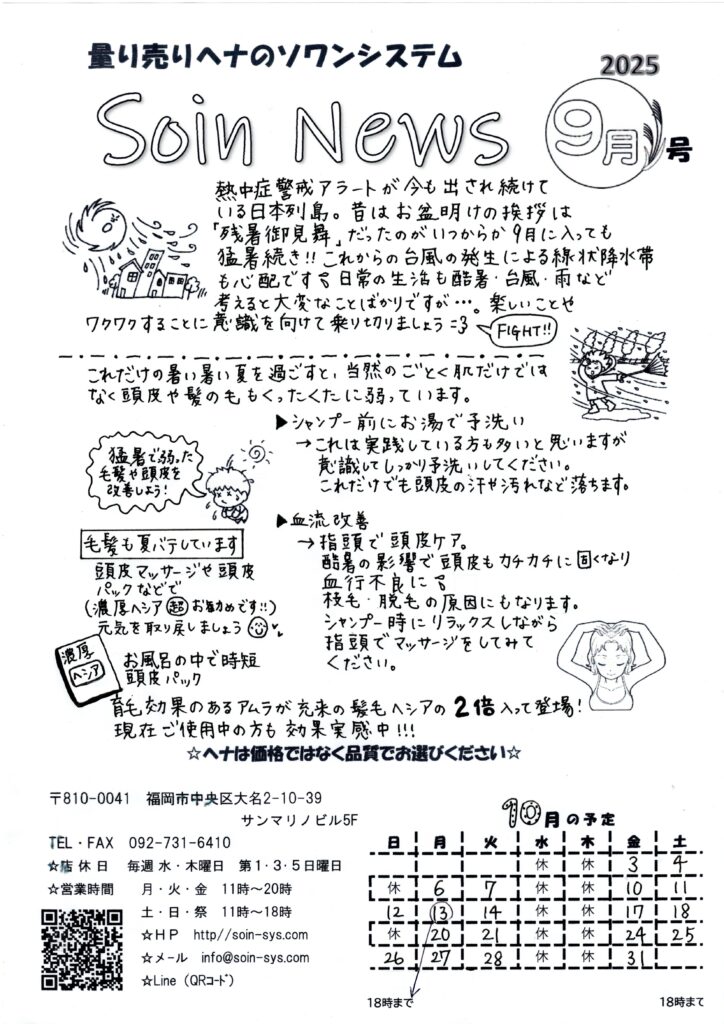 量り売りヘナのソワンシステム
2025
Soin News
9月号
熱中症警戒アラートが今も出され続けて
いる日本列島。昔はお盆明けの挨拶は
「残暑御見舞」だったのがいつからか9月に入っても
猛暑続き!!これからの台風の発生による線状降水帯
も心配です 日常の生活も酷暑・台風・雨など
考えると大変なことばかりですが…。楽しいことや
ワクワクすることに意識を向けて乗り切りましょう
FIGHT!!
これだけの暑い暑い夏を過ごすと、当然のごとく肌だけでは
なく頭皮や髪の毛もくったくたに弱っています。
▶シャンプー前にお湯で予洗い
→これは実践している方も多いと思いますが
意識してしっかり予洗いしてください。
これだけでも頭皮の汗や汚れなど落ちます。
猛暑で弱った
毛髪や頭皮を
改善しよう!
▶血流改善
→指頭で頭皮ケア。
酷暑の影響で頭皮もカチカチに固くなり
血行不良に
枝毛・脱毛の原因にもなります。
シャンプー時にリラックスしながら
指頭でマッサージをしてみて
ください。
毛髪も夏バテしています
頭皮マッサージや頭皮
パックなどで
(濃厚ヘシア超お勧めです!!)
元気を取り戻しましょう
濃厚
ヘシア
お風呂の中で時短
頭皮パック
育毛効果のあるアムラが充来の髪毛ヘシアの2倍入って登場!
現在ご使用中の方も効果実感中!!!
☆ヘナは価格ではなく品質でお選びください☆
〒810-0041 福岡市中央区大名2-10-39
サンマリノビル5F
TEL・FAX 092-731-6410
☆店休日 毎週水・木曜日 第1・3・5日曜日
☆営業時間 月・火・金 11時～20時
土・日・祭 11時～18時
☆HP http//soin-sys.com
☆メール info@soin-sys.com
☆Line（QRコード）
10月の予定
日 月 火 水 木 金 土
休 休 3 4
休 6 7 休 休 10 11
12 13 14 休 休 17 18
休 20 21 休 休 24 25
26 27 28 休 休 31
18時まで 18時まで